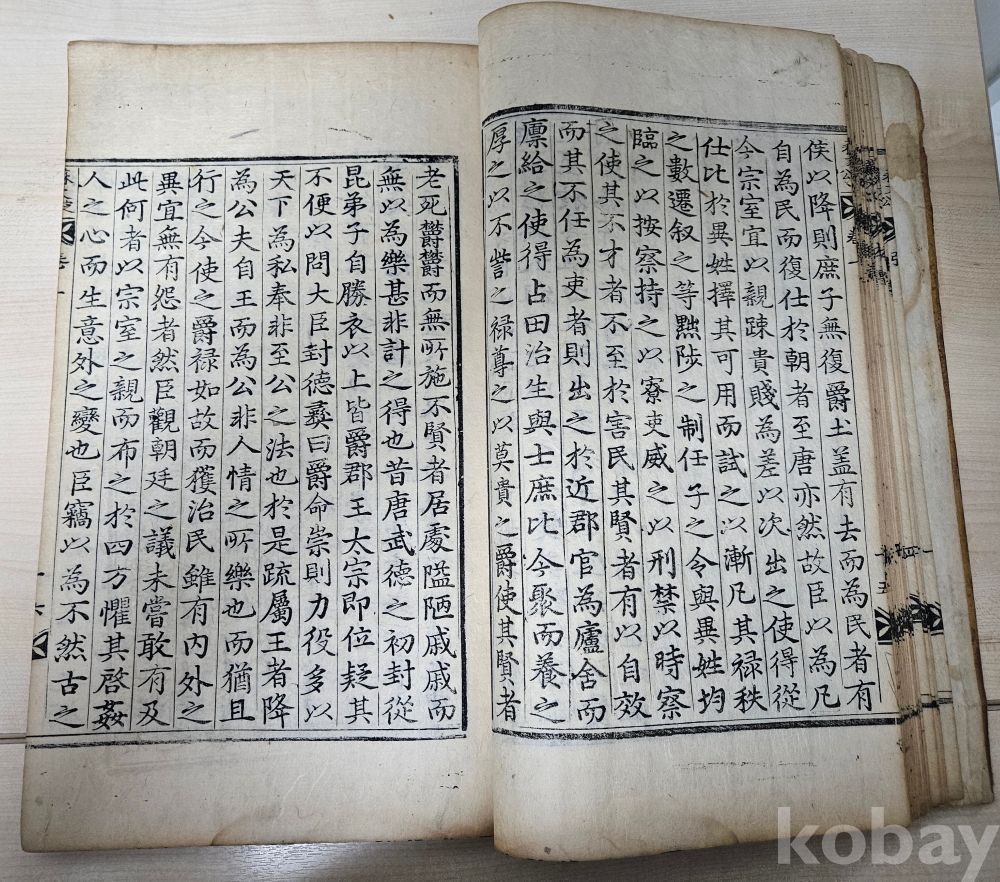 侯以降則庶子無復爵土盖有去而為民者有
自為民而復仕於朝者至唐亦然故臣以為凡
今宗室宜以親踈貴賤為差以次出之使得從
仕比於異姓擇其可用而試之以漸凡其禄秩
之數遷叙之等黜陟之制任子之令與異姓均
臨之以按察持之以寮吏威之以刑禁以時察
之使其不才者不至於害民其賢者有以自效
而其不任為吏者則出之於近郡官為廬舍而
廪給之使得占田治生與士庶比今聚而養之
厚之以不訾之禄尊之以莫貴之爵使其賢者
老死欝欝而無所施不賢者居處隘陋戚戚而
無以為樂甚非計之得也昔唐武德之初封從
昆弟子自勝衣以上皆爵郡王太宗即位疑其
不便以問大臣封德彝曰爵命崇則力役多以
天下為私奉非至公之法也於是疏屬王者降
為公夫自王而為公非人情之所樂也而猶且
行之今使之爵禄如故而獲治民雖有內外之
異宜無有怨者然臣觀朝廷之議未嘗敢有及
此何者以宗室之親而布之於四方懼其啓姦
人之心而生意外之變也臣竊以為不然古之
kobay